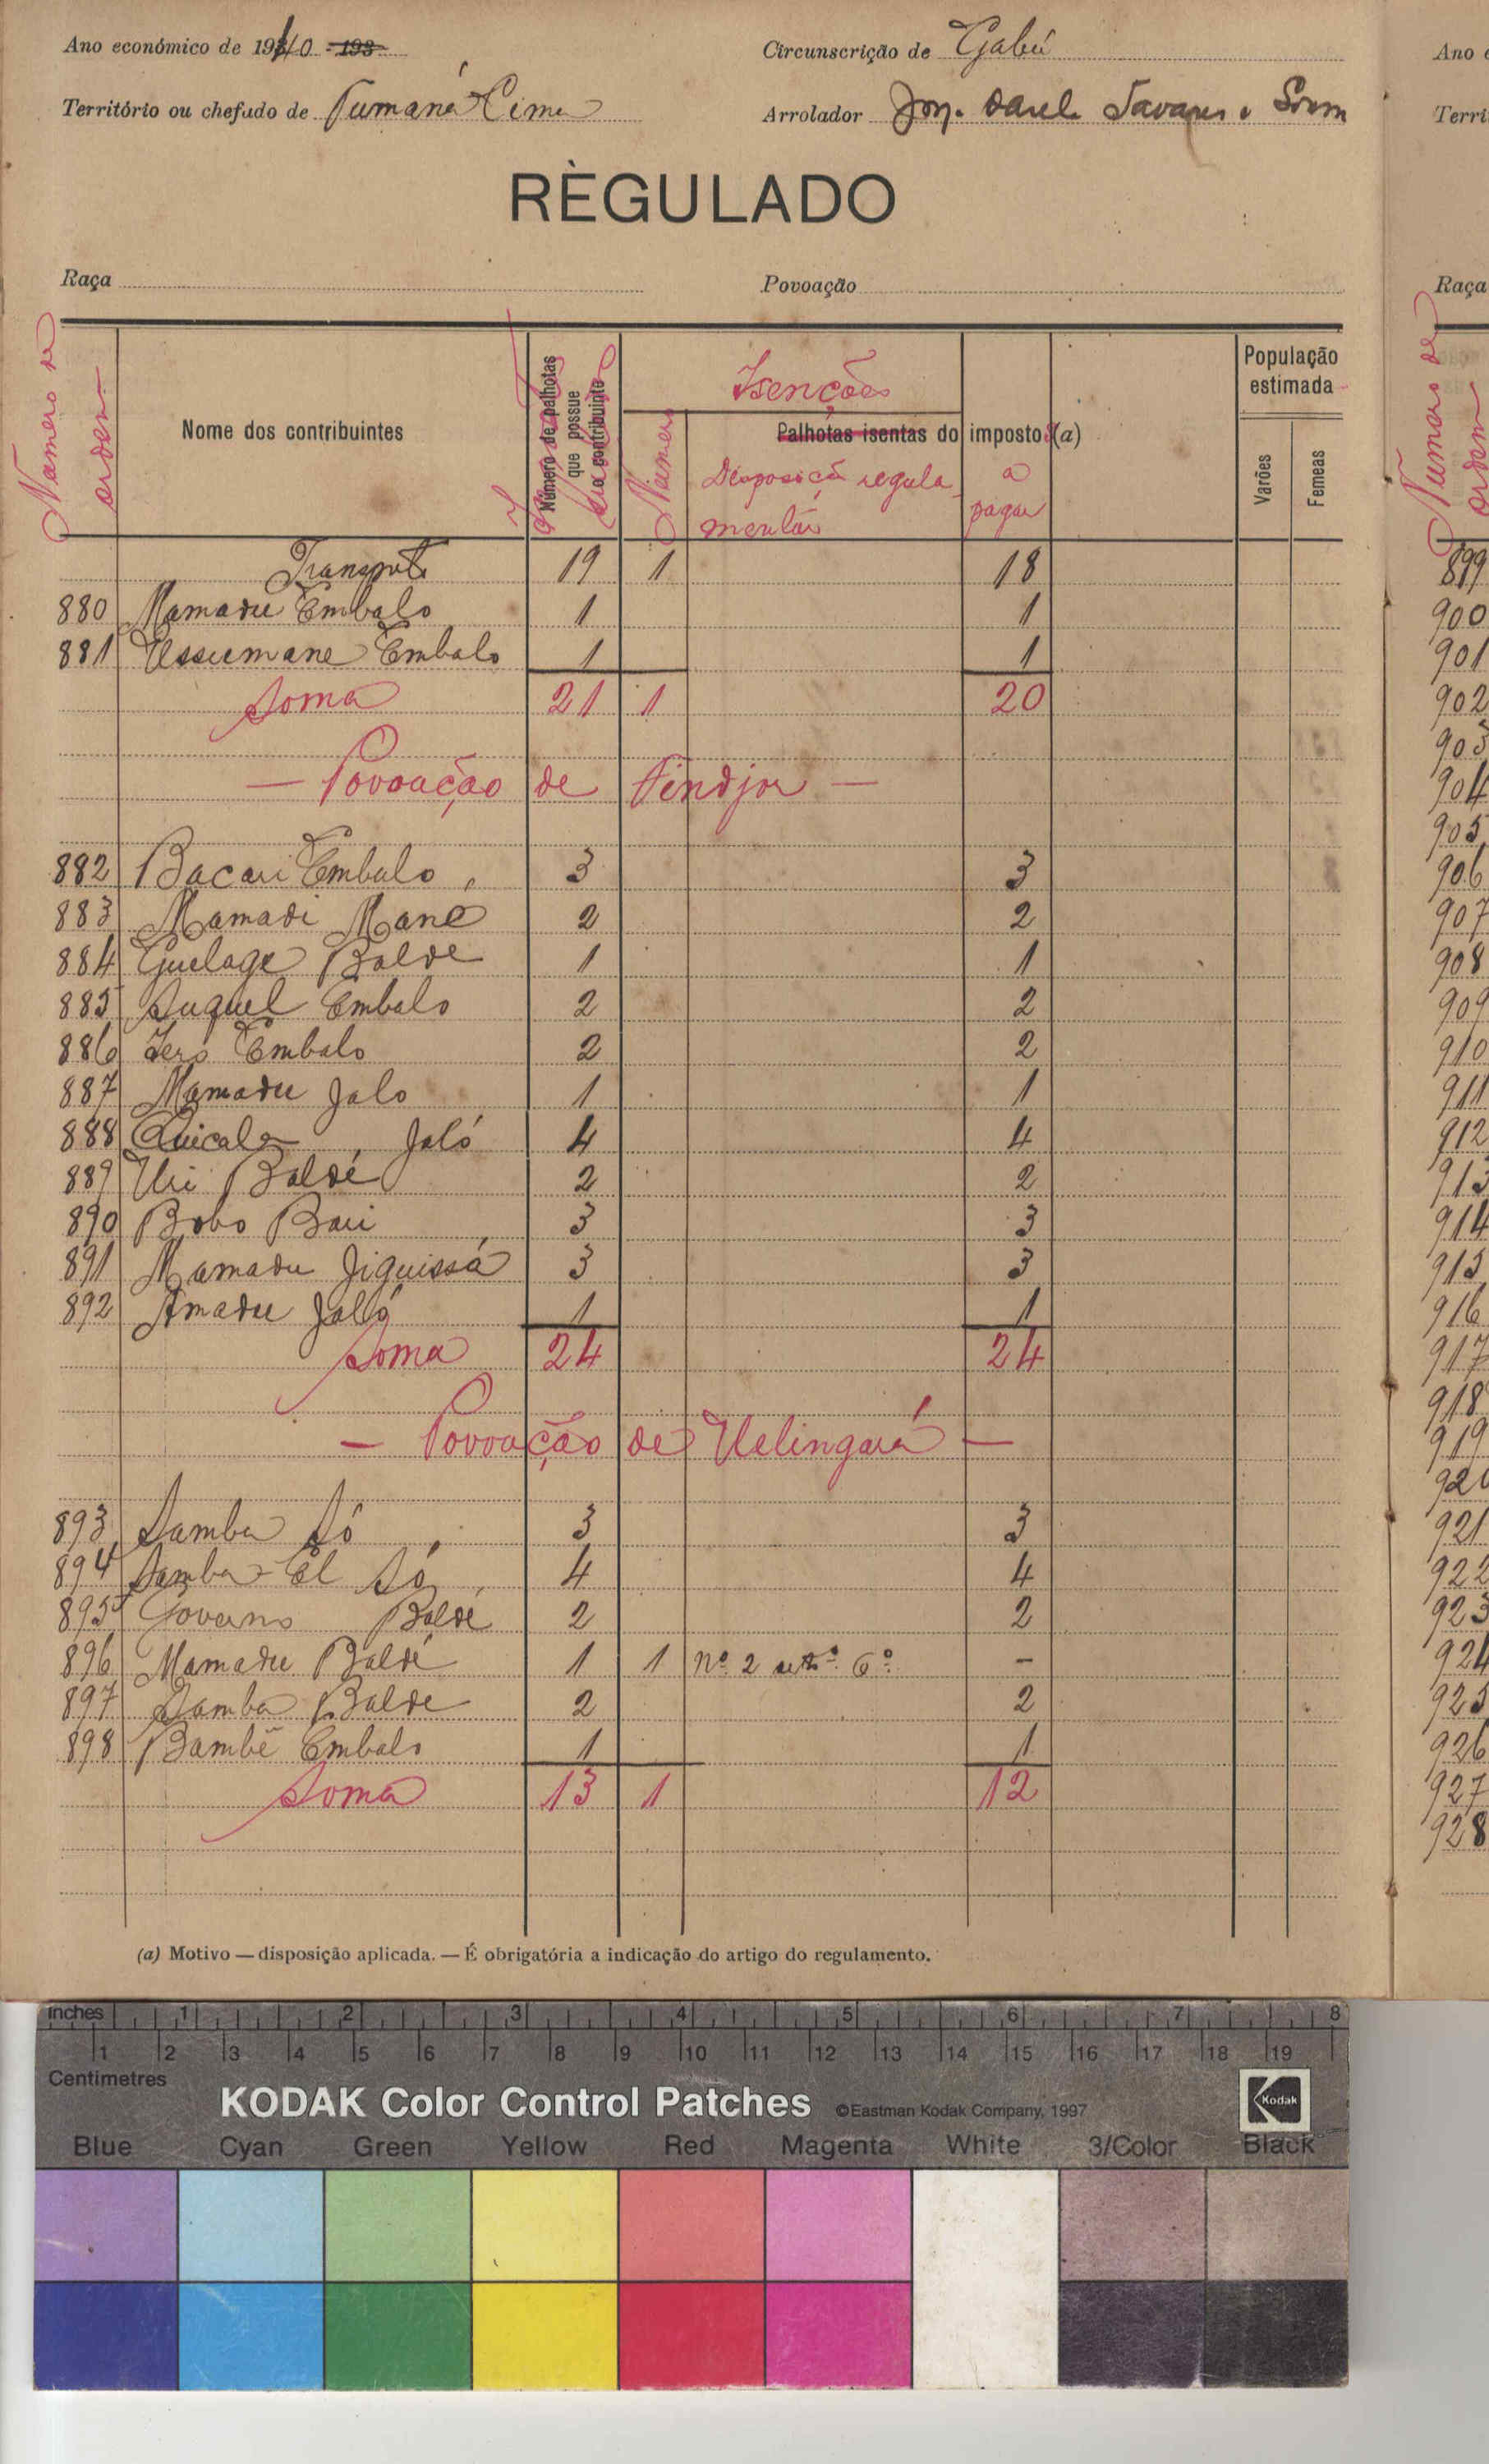 Ano económico de 1940 - 193
Circunscrição de Gabú
Território ou chefado de Tumaná Cima
Arrolador Tavares e
RÈGULADO
Raça
Povoação
Numero de ordem
Nome dos contribuintes
Número de palhotas que possue o contribuinte
Isenções
Palhotas isentas do imposto (a)
Numero
Disposição regulamentar
a pagar
População estimada
Varões
Femeas
Transporte 19 1 18
880 Mamadu Embalo 1 1
881 Ussumane Embalo 1 1
Soma 21 1 20
— Povoação de —
882 Bacari Embalo 3 3
883 Mamadi Mané 2 2
884 Guelage Balde 1 1
885 Suquel Embalo 2 2
886 Iero Embalo 2 2
887 Mamadu Jalo 1 1
888 Jaló 4 4
889 Uri Baldé 2 2
890 Bobo Bari 3 3
891 Mamadu Jiquissá 3 3
892 Amadu Jalló 1 1
Soma 24 24
— Povoação de Velingará —
893 Samba Só 3 3
894 Samba-El Só 4 4
895 Governo Baldé 2 2
896 Mamadu Baldé 1 1 nº 2 artº 6º -
897 Samba Balde 2 2
898 Bambé Embalo 1 1
Soma 13 1 12
(a) Motivo — disposição aplicada. — É obrigatória a indicação do artigo do regulamento.
Ano
Terri
Raça
Numero de ordem
899
900
901
902
903
904
905
906
907
908
909
910
911
912
913
914
915
916
917
918
919
920
921
922
923
924
925
926
927
928
inches 1 2 3 4 5 6 7 8
1 2 3 4 5 6 7 8 9 10 11 12 13 14 15 16 17 18 19
Centimetres
KODAK Color Control Patches ©Eastman Kodak Company, 1997 Kodak
Blue Cyan Green Yellow Red Magenta White 3/Color Black